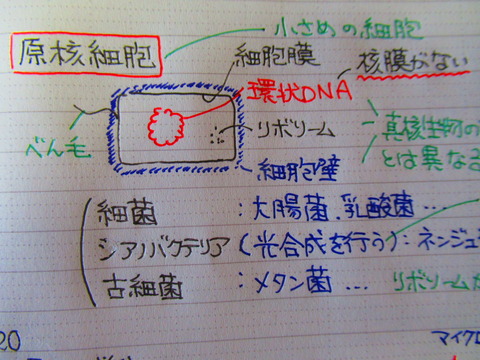 小さめの細胞
原核細胞
細胞膜
核膜がない
環状DNA
べん毛
リボソーム
真核生物の
とは異なる
細胞壁
細菌 : 大腸菌、乳酸菌 …
シアノバクテリア (光合成を行う) : ネンジュ
古細菌 : メタン菌 …
リボソームが
20
マイクロ